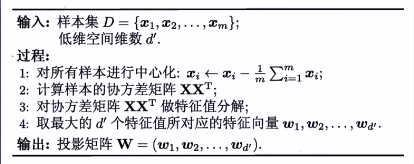 输入：样本集 D = {x₁, x₂, . . . , xₘ};
低维空间维数 d′.
过程：
1: 对所有样本进行中心化: xᵢ ← xᵢ − 1/m ∑ᵢ₌₁ᵐ xᵢ;
2: 计算样本的协方差矩阵 XXᵀ;
3: 对协方差矩阵 XXᵀ 做特征值分解;
4: 取最大的 d′ 个特征值所对应的特征向量 w₁, w₂, . . . , w_d′.
输出：投影矩阵 W = (w₁, w₂, . . . , w_d′).